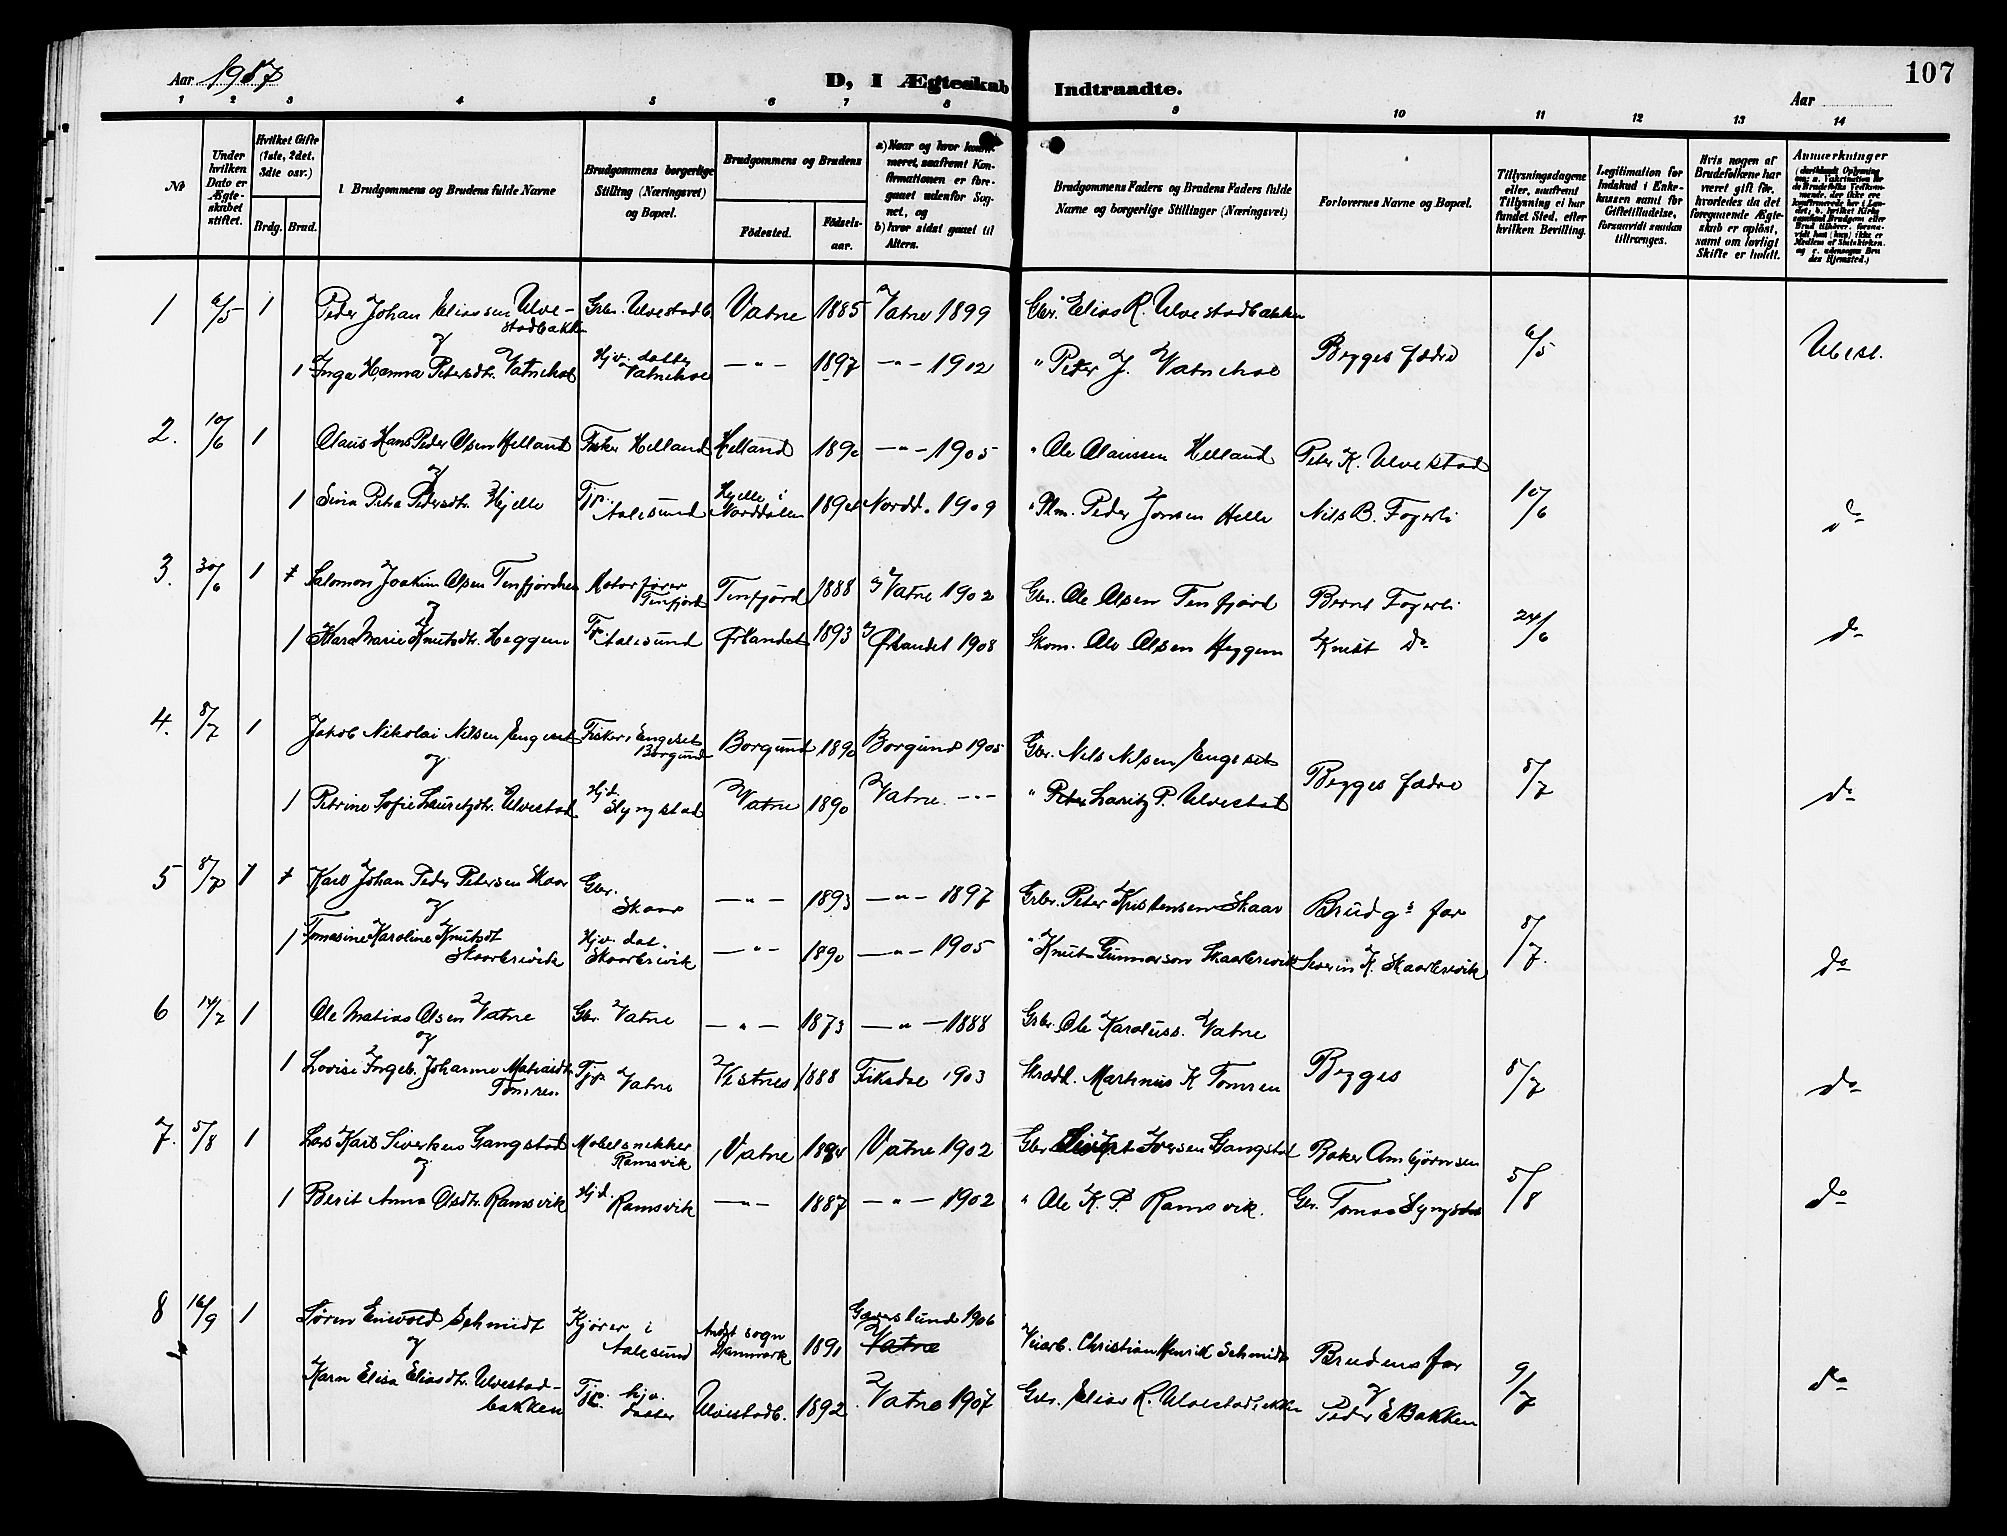 107
Aar 1917
D, I Ægteskab Indtraadte.
Aar
1 2 3 4 5 6 7 8 9 10 11 12 13 14
Nr
Under hvilken Dato er Ægteskabet stiftet.
Hvilket Gifte (1ste, 2det, 3die osv.)
Brdg. Brud.
Brudgommens og Brudens fulde Navne
Brudgommens borgerlige Stilling (Næringsvei) og Bopæl.
Brudgommens og Brudens
Fødested.
Fødselsaar.
a) Naar og hvor konfirmeret, saafremt Konfirmationen er foregaaet udenfor Sognet, og
b) hvor sidst gaaet til Alters.
Brudgommens Faders og Brudens Faders fulde Navne og borgerlige Stillinger (Næringsvei)
Forlovernes Navne og Bopæl.
Tillysningsdagene eller, saafremt Tillysning ei har fundet Sted, efter hvilken Bevilling.
Legitimation for Indskud i Enkekassen samt for Giftetilladelse, forsaavidt saadan tiltrænges.
Hvis nogen af Brudefolkene har været gift før, hvorledes da det foregaaende Ægteskab er opløst, samt om lovligt Skifte er holdt.
Anmærkninger
1 6/5 1 Peder Johan Eliassen Ulvestadbakken Gbr. Ulvestadb. Vatne 1885 Vatne 1899 Gbr. Elias R. Ulvestadbakken
og
1 Inga Hanna Petersdtr. Vatnehol Hjv. datter Vatnehol -"- 1897 -"- 1912 " Peter J. Vatnehol Begges fædre 6/5
2. 10/6 1 Olaus Hans Peder Olsen Helland Fisker Helland Helland 1890 -"- 1905 " Ole Olaussen Helland Peter K. Ulvestad
og
1 Sina Petra Pedersdtr. Hjelle Tjp. Aalesund Hjelle i Norddalen 1894 Nordd. 1909 Peder Jonsen Helle Nils B. Fogerli 10/6 do
3. 30/6 1 Salomon Joakim Olsen Tenfjord Motorfører Tenfjord Tenfjord 1888 Vatne 1902 Gbr. Ole Olsen Tenfjord Bernt Fogerli
og
1 Kara Marie Knutsdtr. Heggem Tp. i Aalesund Ørlandet 1893 Ørlandet 1908 Skom. Ole Olsen Heggem Knut do 24/6 do
4. 8/7 1 Jakob Nikolai Nilsen Engeset Fisker, Engeset Borgund Borgund 1890 Borgund 1905 Gbr. Nils Nilsen Engeset
og
1 Petrine Sofie Lauritzdtr. Ulvestad Hjd. Slyngstad Vatne 1890 Vatne -"- " Lauritz P. Ulvestad Begges fædre 8/7 do
5 8/7 1 Karl Johan Peder Petersen Skaar Gbr. Skaar -"- 1893 -"- 1897 Gbr. Peter Kristensen Skaar Brudgs far
og
1 Tomasine Karoline Knutsdt Skaarbrevik Hjv. dat. Skaarbrevik -"- 1890 -"- 1905 " Knut Gunnarson Skaarbrevik Severin K. Skaarbrevik 8/7. do
6 14/7 1 Ole Matias Olsen Vatne Gbr. Vatne -"- 1873 -"- 1888 Gbr. Ole Karoluss. Vatne
og
1 Lovise Ingeb. Johanne Matiasdtr. Tomren Tjp. Vatne Vestnes 1888 Fiksdal 1903 Skrædd. Martinus K Tomren Begges 8/7 do
7. 5/8 1 Lars Karl Sivertsen Gangstad Møbelsnekker Ramsvik Vatne 1884 Vatne 1902 Gbr. Sivert Iversen Gangstad Baker Arnbjørnsen
og
1 Berit Anna Olsdtr. Ramsvik Hjd. Ramsvik -"- 1887 -"- 1902 " Ole K. P. Ramsvik. Gbr. Tomas Slyngstad 5/8 do
8 16/9 1 Søren Enevold Schmidt Kjører i Aalesund Andst sogn Danmark 1891 Gaverslund 1906 Vatne Veiarb. Christian Henrik Schmidt Brudens far
og
Karn Elisa Eliasdtr. Ulvestadbakken Tje. hjv. datter Ulvestadb. 1892 Vatne 1907 Gbr. Elias R. Ulvestadbakken og Peder E Bakken 9/7 do